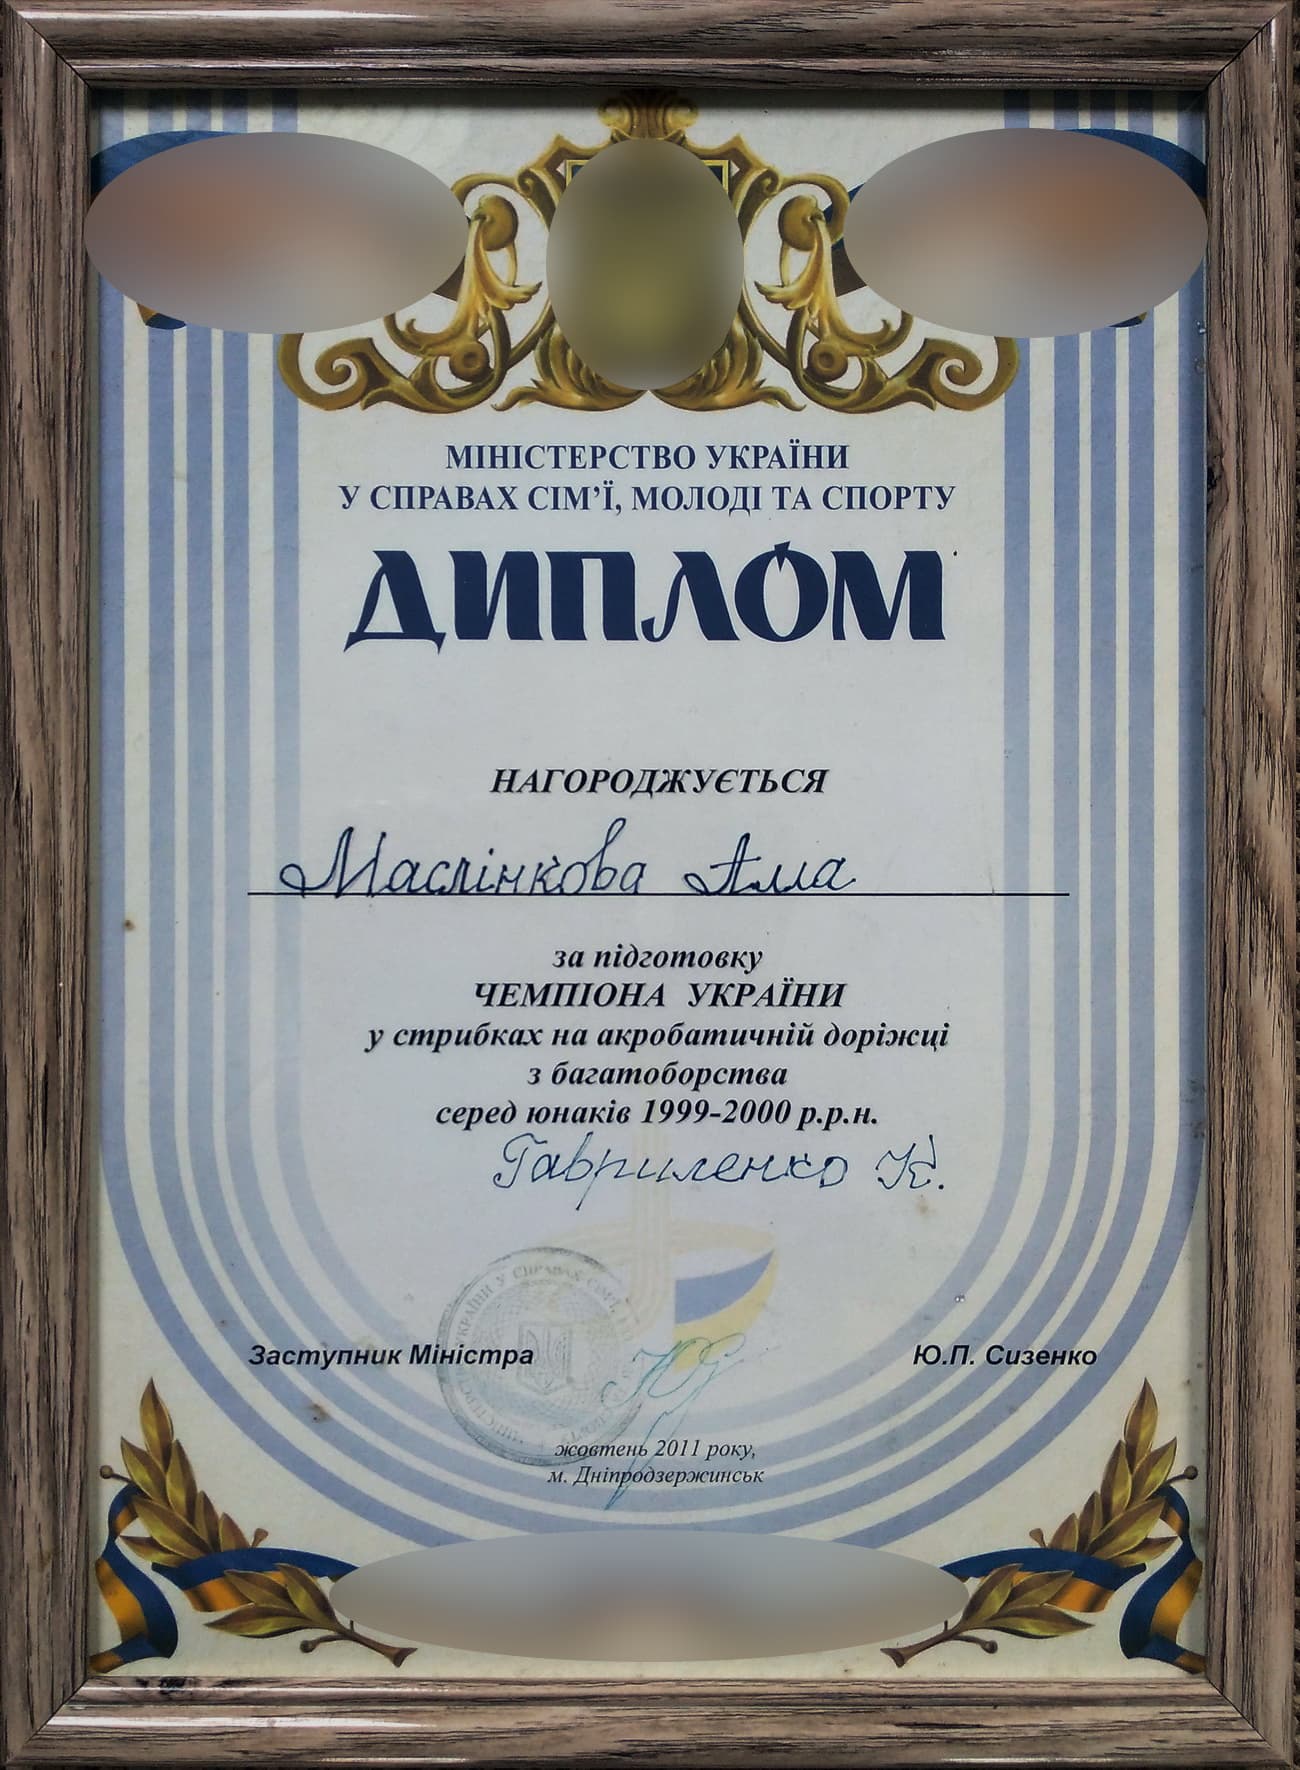 МІНІСТЕРСТВО УКРАЇНИ
У СПРАВАХ СІМ’Ї, МОЛОДІ ТА СПОРТУ
ДИПЛОМ
НАГОРОДЖУЄТЬСЯ
Маслінкова Алла
за підготовку
ЧЕМПІОНА УКРАЇНИ
у стрибках на акробатичній доріжці
з багатоборства
серед юнаків 1999-2000 р.р.н.
Гавриленко К.
УКРАЇНИ У СПРАВАХ СІМ'Ї,
Заступник Міністра
Ю.П. Сизенко
жовтень 2011 року,
м. Дніпродзержинськ